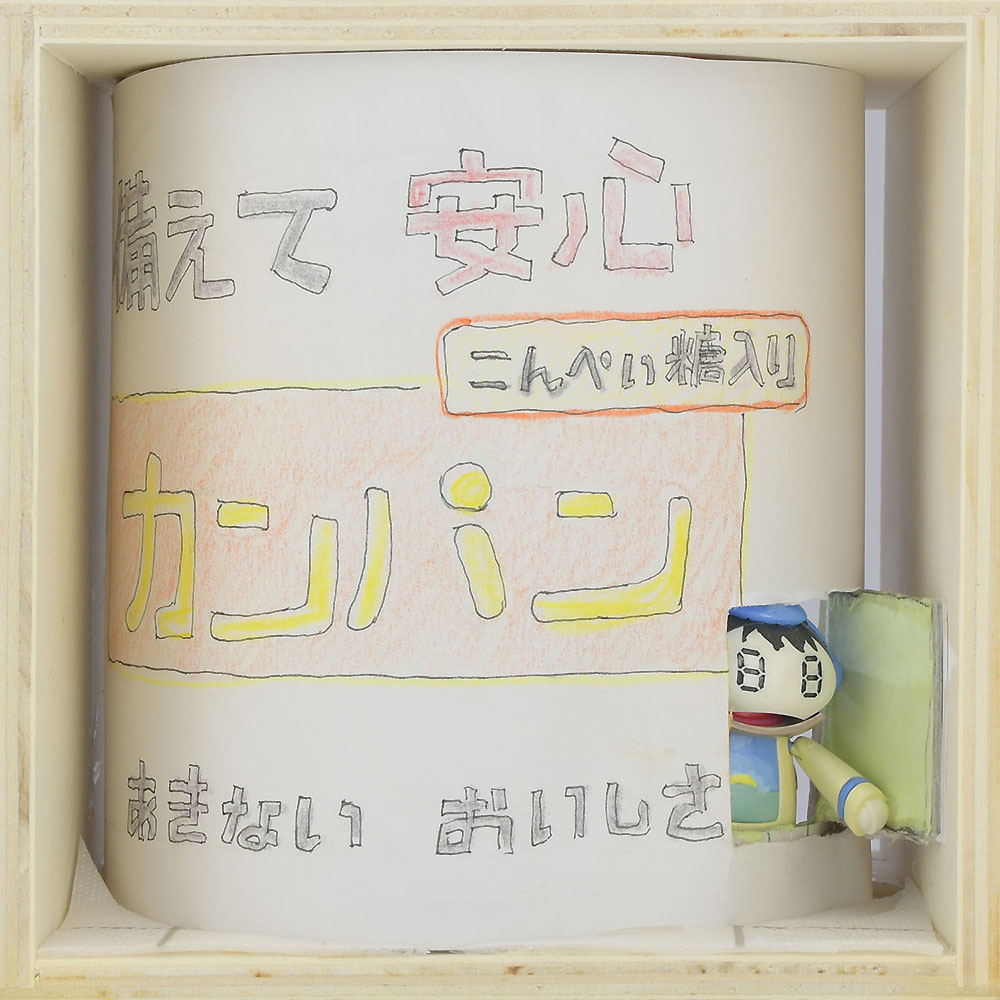 備えて 安心
こんぺい糖入り
カンパン
あきない おいしさ
8 8